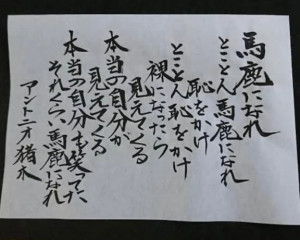 馬鹿になれ
とことん馬鹿になれ
恥をかけ
とことん恥をかけ
裸になったら
見えてくる
本当の自分が
見えてくる
本当の自分も笑ってた
それぐらい馬鹿になれ
アントニオ猪木